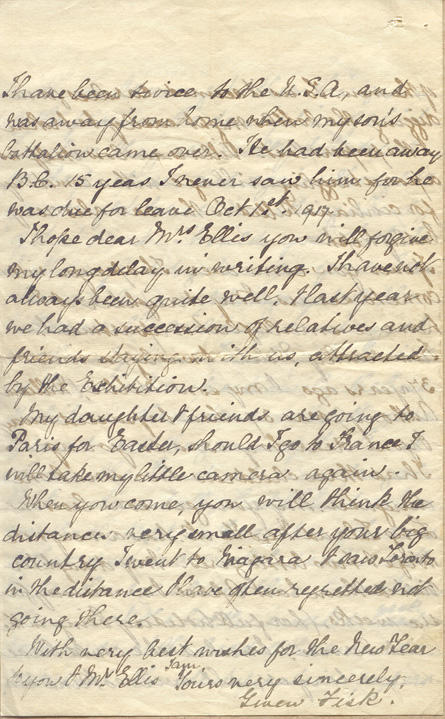 I have been twice to the U.S.A, and
was away from home when my son's
battalion came over. He had been away
B.C. 15 years I never saw him for he
was due for leave Oct 1st. 1917
I hope dear Mrs Ellis you will forgive
my long delay in writing. I have not
always been quite well, & last year
we had a succession of relatives and
friends staying with us, attracted
by the Exhibition.
My daughter & friends are going to
Paris for Easter, should I go to France I
will take my little camera again.
When you come, you will think the
distances very small after your big
country I went to Niagara & saw Toronto
in the distance I have often regretted not
going there.
With very best wishes for the New Year
to you & Mr Ellis I am
Yours very sincerely.
Fisk.